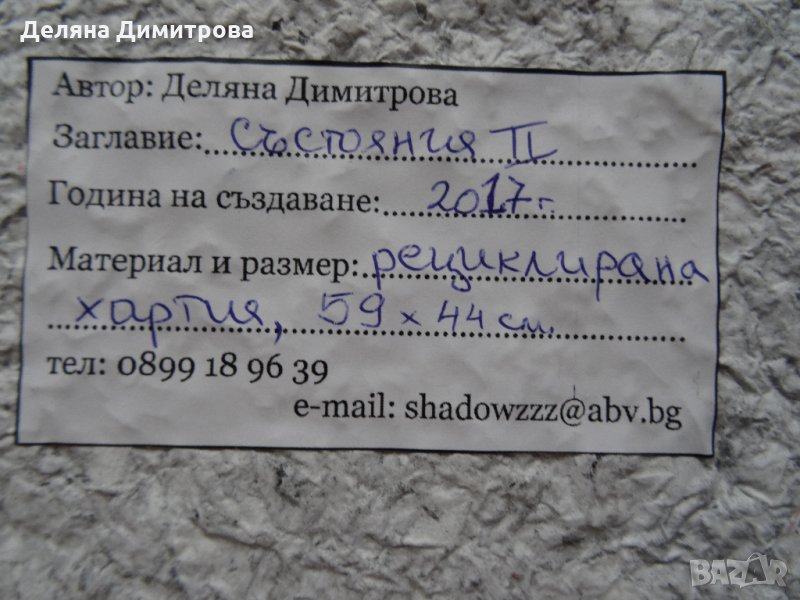 Деляна Димитрова
Автор: Деляна Димитрова
Заглавие: Състояния II
Година на създаване: 2017 г.
Материал и размер: рециклирана
хартия, 59 x 44 см.
тел: 0899 18 96 39
e-mail: shadowzzz@abv.bg
BAZAR